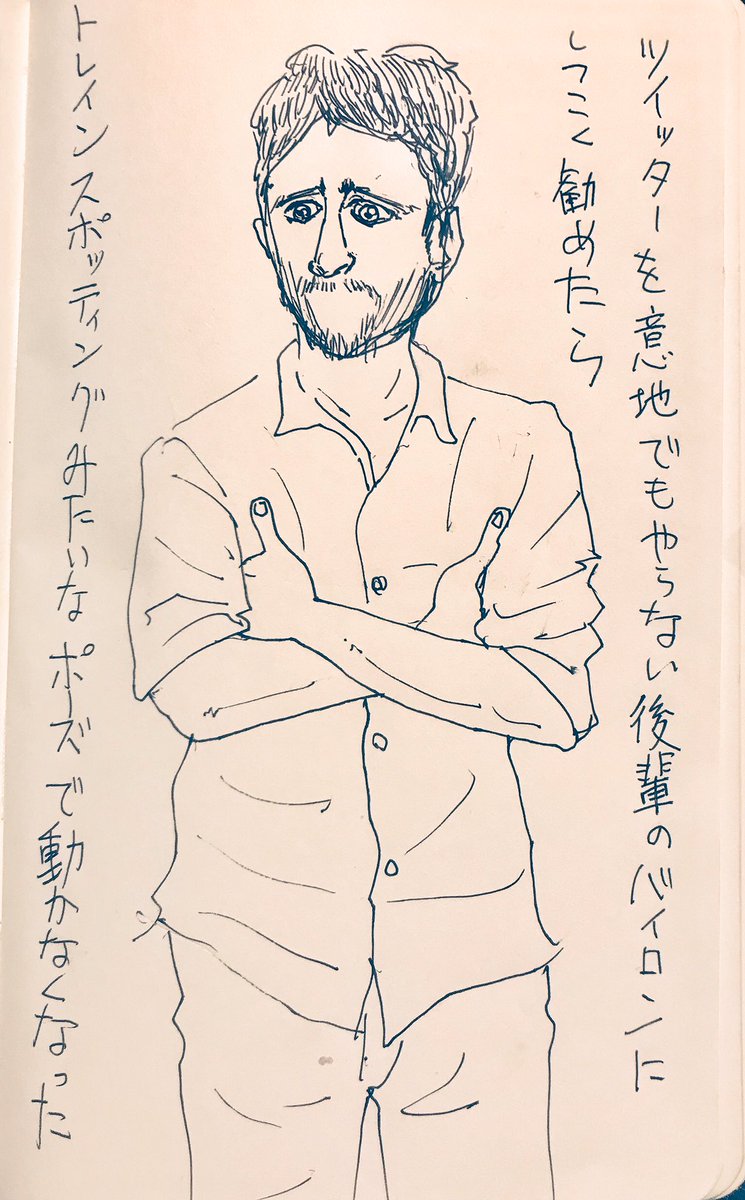 ツイッターを意地でもやらない後輩のバイロンに
しつこく勧めたら
トレインスポッティングみたいなポーズで動かなくなった